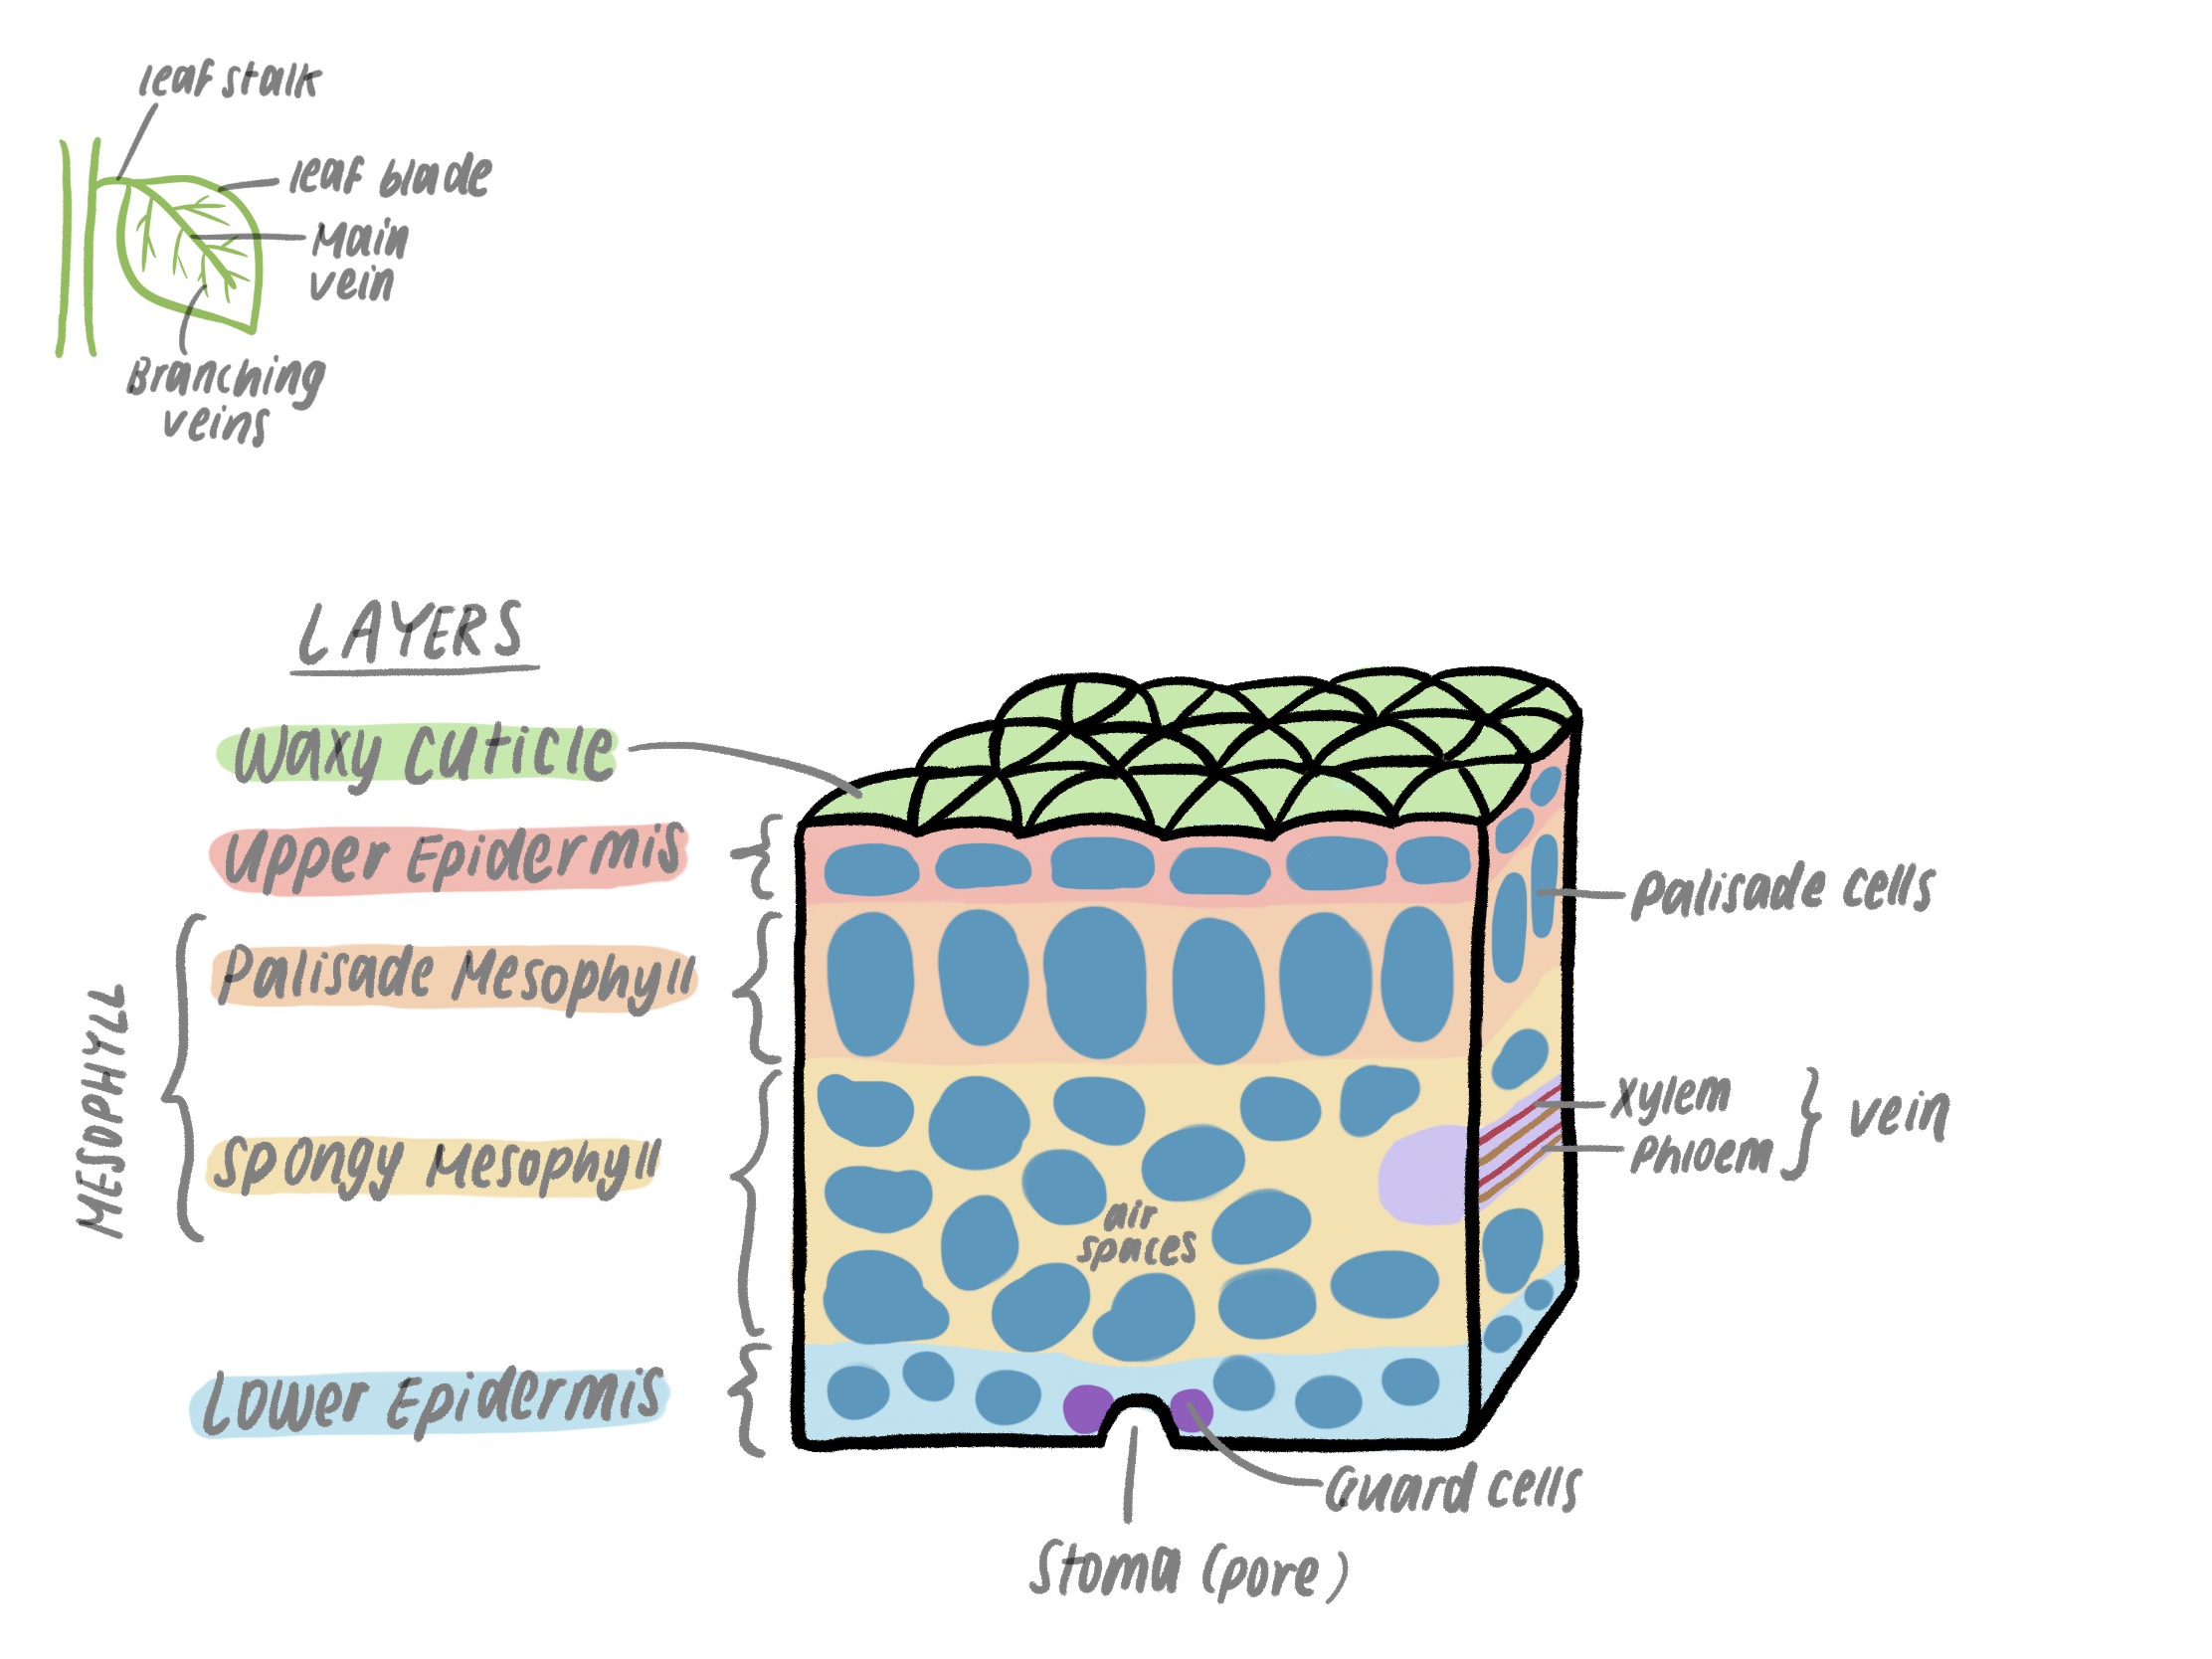 leaf stalk
leaf blade
Main
vein
Branching
veins
LAYERS
Waxy Cuticle
Upper Epidermis
Palisade Mesophyll
MESOPHYLL
Spongy Mesophyll
Lower Epidermis
air
spaces
Palisade cells
Xylem
Phloem
vein
Guard cells
Stoma (pore)